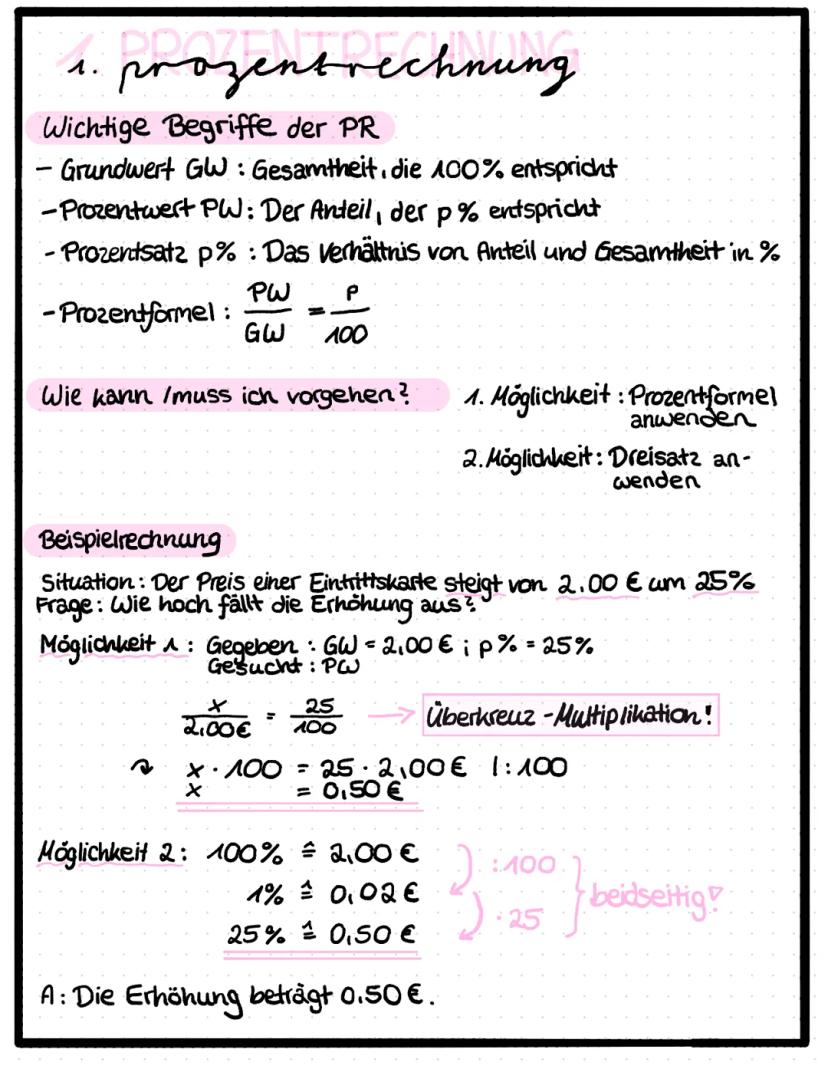 1. PROZENTRECHNUNG
1. prozentrechnung
Wichtige Begriffe der PR
- Grundwert GW : Gesamtheit, die 100% entspricht
- Prozentwert PW : Der Anteil, der p% entspricht
- Prozentsatz p% : Das Verhältnis von Anteil und Gesamtheit in %
- Prozentformel : PW/GW = P/100
Wie kann /muss ich vorgehen?
1. Möglichkeit : Prozentformel
anwenden
2. Möglichkeit : Dreisatz an-
wenden
Beispielrechnung
Situation : Der Preis einer Eintrittskarte steigt von 2,00 € um 25%
Frage : Wie hoch fällt die Erhöhung aus?
Möglichkeit 1 : Gegeben : GW = 2,00 € ; p% = 25%
Gesucht : PW
x/2,00€ = 25/100 → Überkreuz-Multiplikation!
↷ x · 100 = 25 · 2,00 € |:100
x = 0,50 €
Möglichkeit 2 : 100% ≙ 2,00 €
:100
1% ≙ 0,02 €
beidseitig!
· 25
25% ≙ 0,50 €
A : Die Erhöhung beträgt 0,50 €.